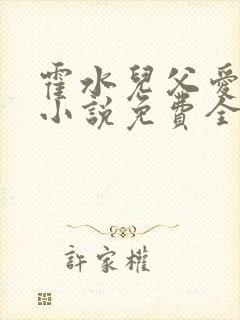 霍水兒父愛
小說免費全
許家權